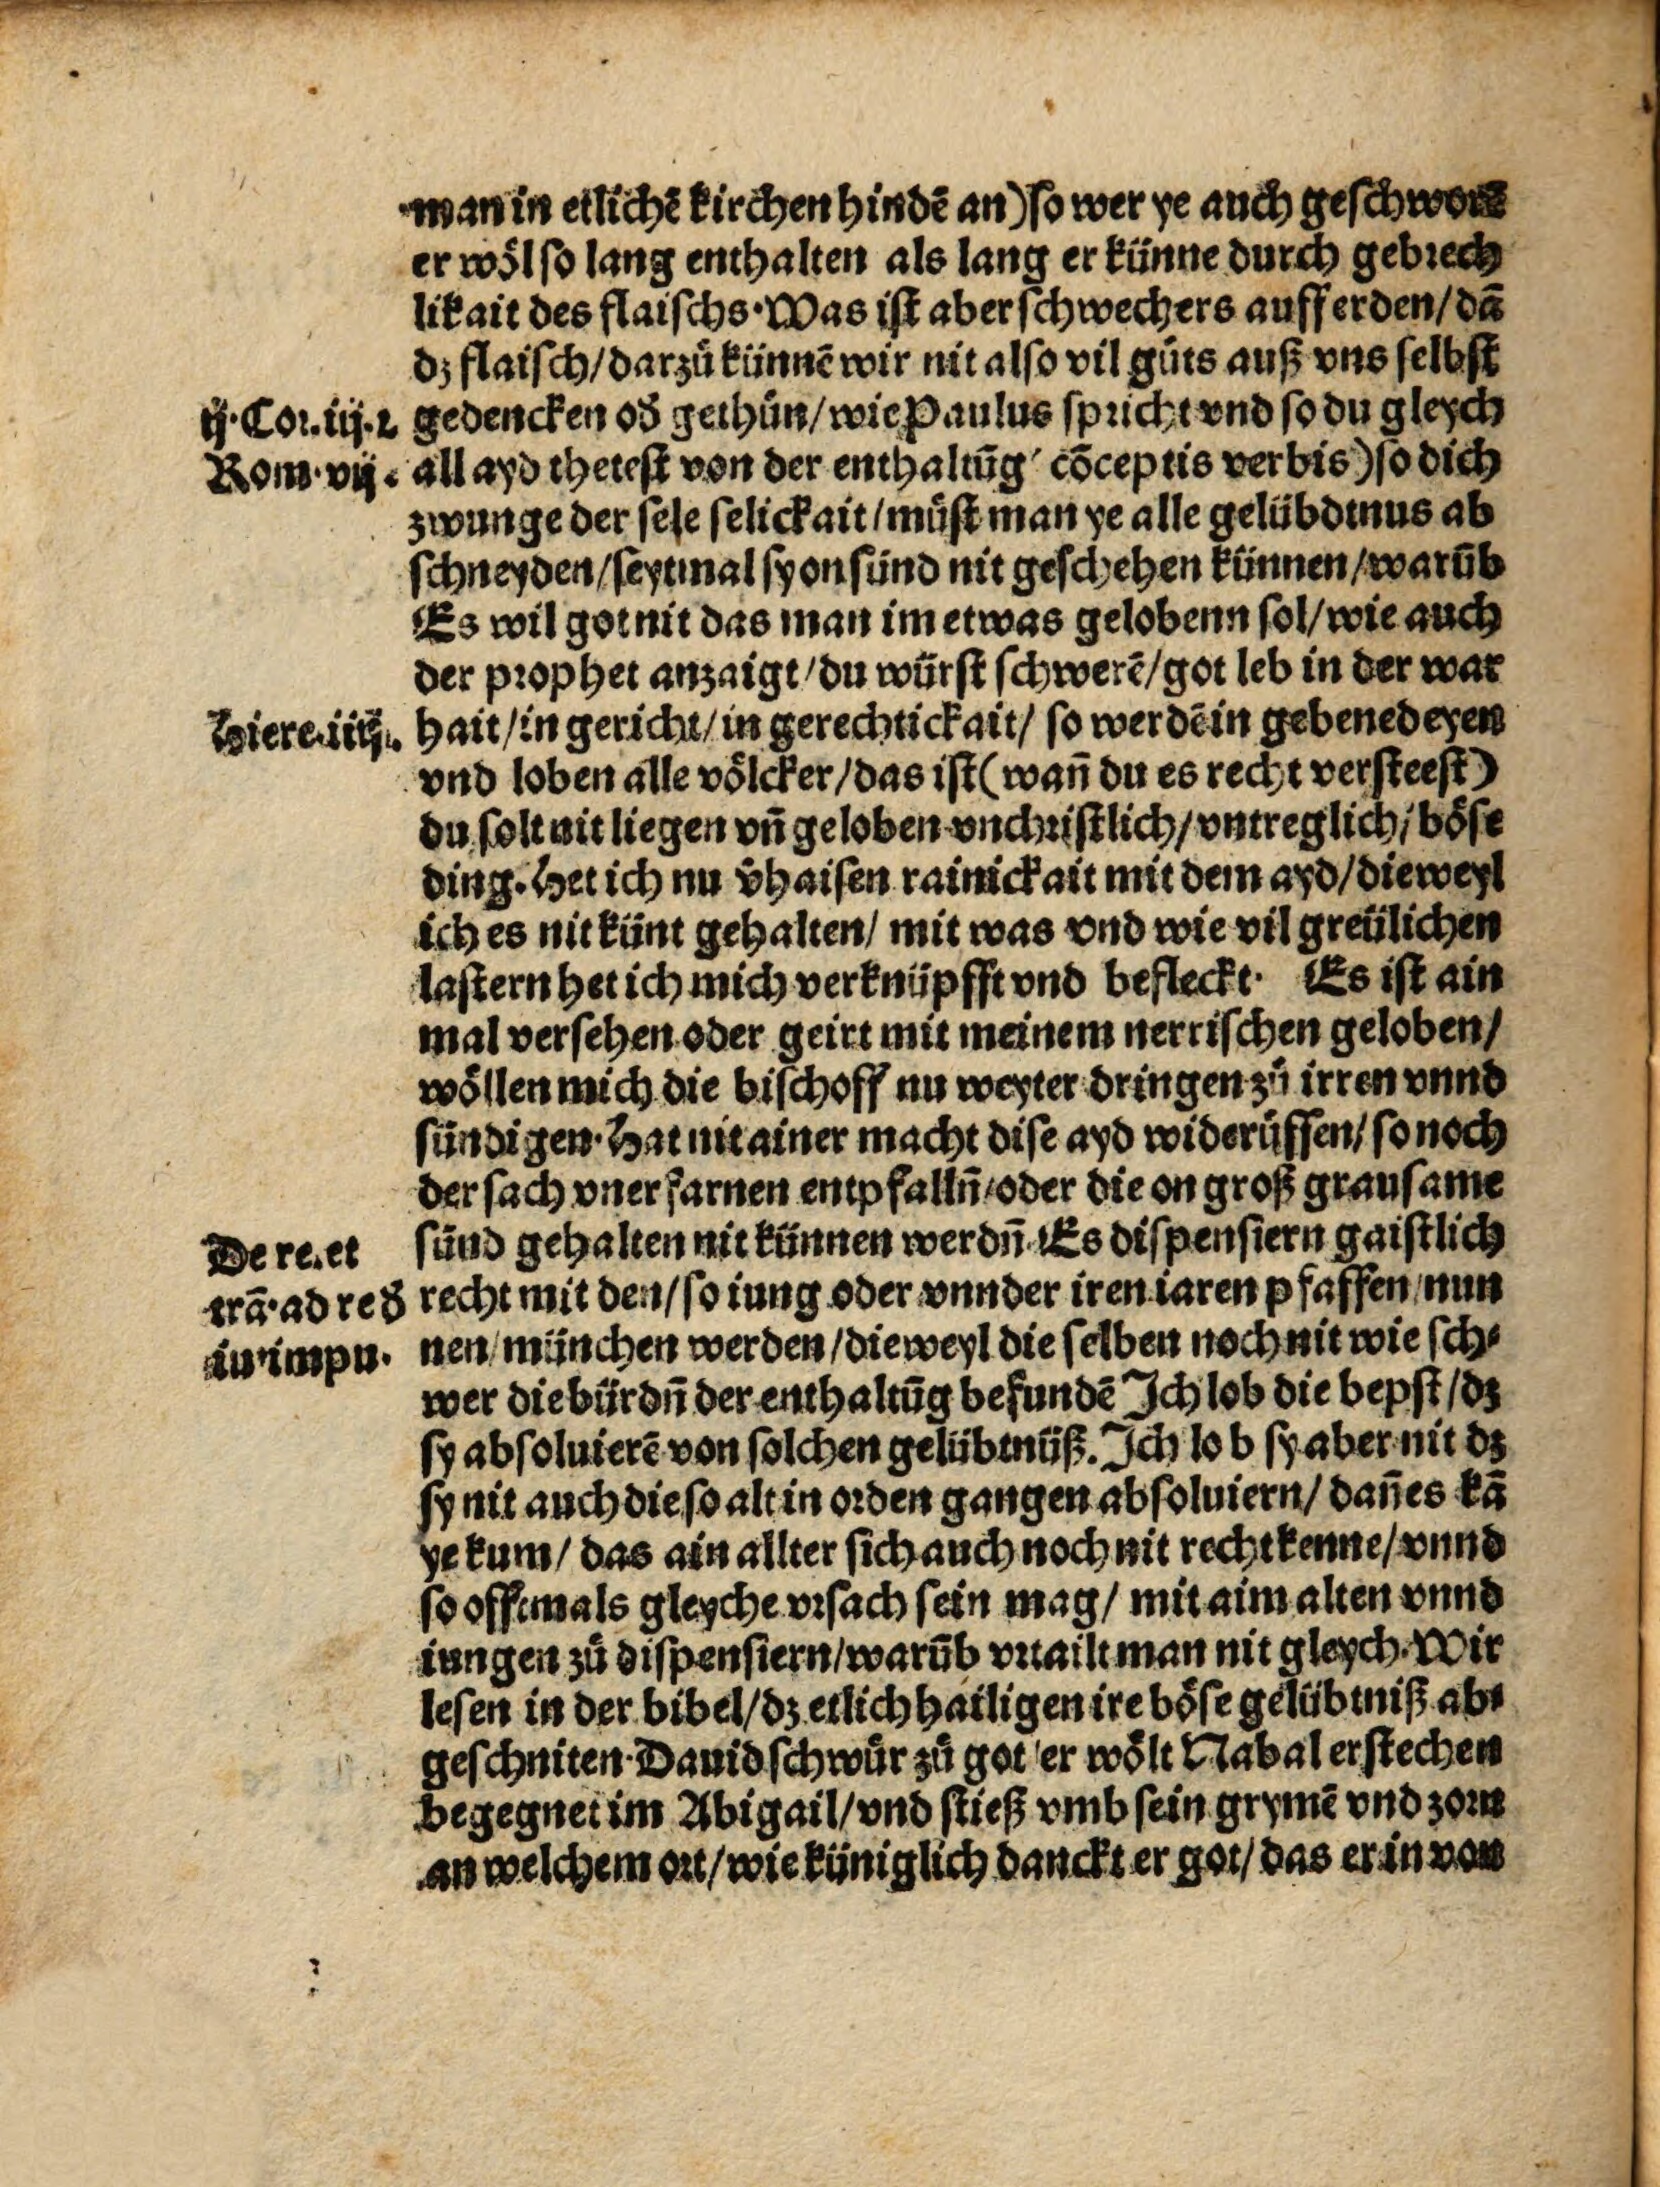 man in etlichē kirchen hindē an) so wer ye auch geschworē
er wöl so lang enthalten als lang er künne durch gebrech
likait des flaischs. Was ist aber schwechers auff erden/ dā
dz flaisch/ darzů künnē wir nit also vil gůts auß vns selbst
ij. Cor. iij. ꝛ gedencken od̕ gethůn/ wie Paulus spricht vnd so du gleych
Rom. vij. all ayd thetest von der enthaltūg (cōceptis verbis) so dich
zwunge der sele selickait/ můst man ye alle gelübdtnus ab
schneyden/ seytmal sy on sünd nit geschehen künnen/ warūb
Es wil got nit das man im etwas gelobenn sol/ wie auch
der prophet anzaigt/ du würst schwerē/ got leb in der war
Hiere. iiij. hait/ in gericht/ in gerechtickait/ so werdē in gebenedeyen
vnd loben alle völcker/ das ist (wañ du es recht versteest)
du solt nit liegen vñ geloben vnchristlich/ vntreglich/ böse
ding. Het ich nu v̕haisen rainickait mit dem ayd/ dieweyl
ich es nit künt gehalten/ mit was vnd wie vil greülichen
lastern het ich mich verknüpfft vnd befleckt. Es ist ain
mal versehen oder geirt mit meinem nerrischen geloben/
wöllen mich die bischoff nu weyter dringen zů irren vnnd
sündigen. Hat nit ainer macht dise ayd widerůffen/ so noch
der sach vnerfarnen entpfallñ/ oder die on groß grausame
De re. et sünd gehalten nit künnen werdñ Es dispensiern gaistlich
trā. ad red̕ recht mit den/ so iung oder vnnder iren iaren pfaffen/ nun
iu. impu. nen/ münchen werden/ dieweyl die selben noch nit wie sch⸗
wer die bürdñ der enthaltūg befundē Ich lob die bepst/ dz
sy absoluierē von solchen gelübtnüß. Ich lob sy aber nit dz
sy nit auch die so alt in orden gangen absoluiern/ dañ es kā
ye kum/ das ain allter sich auch noch nit recht kenne/ vnnd
so offtmals gleyche vrsach sein mag/ mit aim alten vnnd
iungen zů dispensiern/ warūb vrtailt man nit gleych. Wir
lesen in der bibel/ dz etlich hailigen ire böse gelübtniß ab⸗
geschniten. Dauid schwůr zů got er wölt Nabal erstechen
begegnet im Abigail/ vnd stieß vmb sein grymē vnd zorn
an welchem ort/ wie küniglich danckt er got/ das er in von